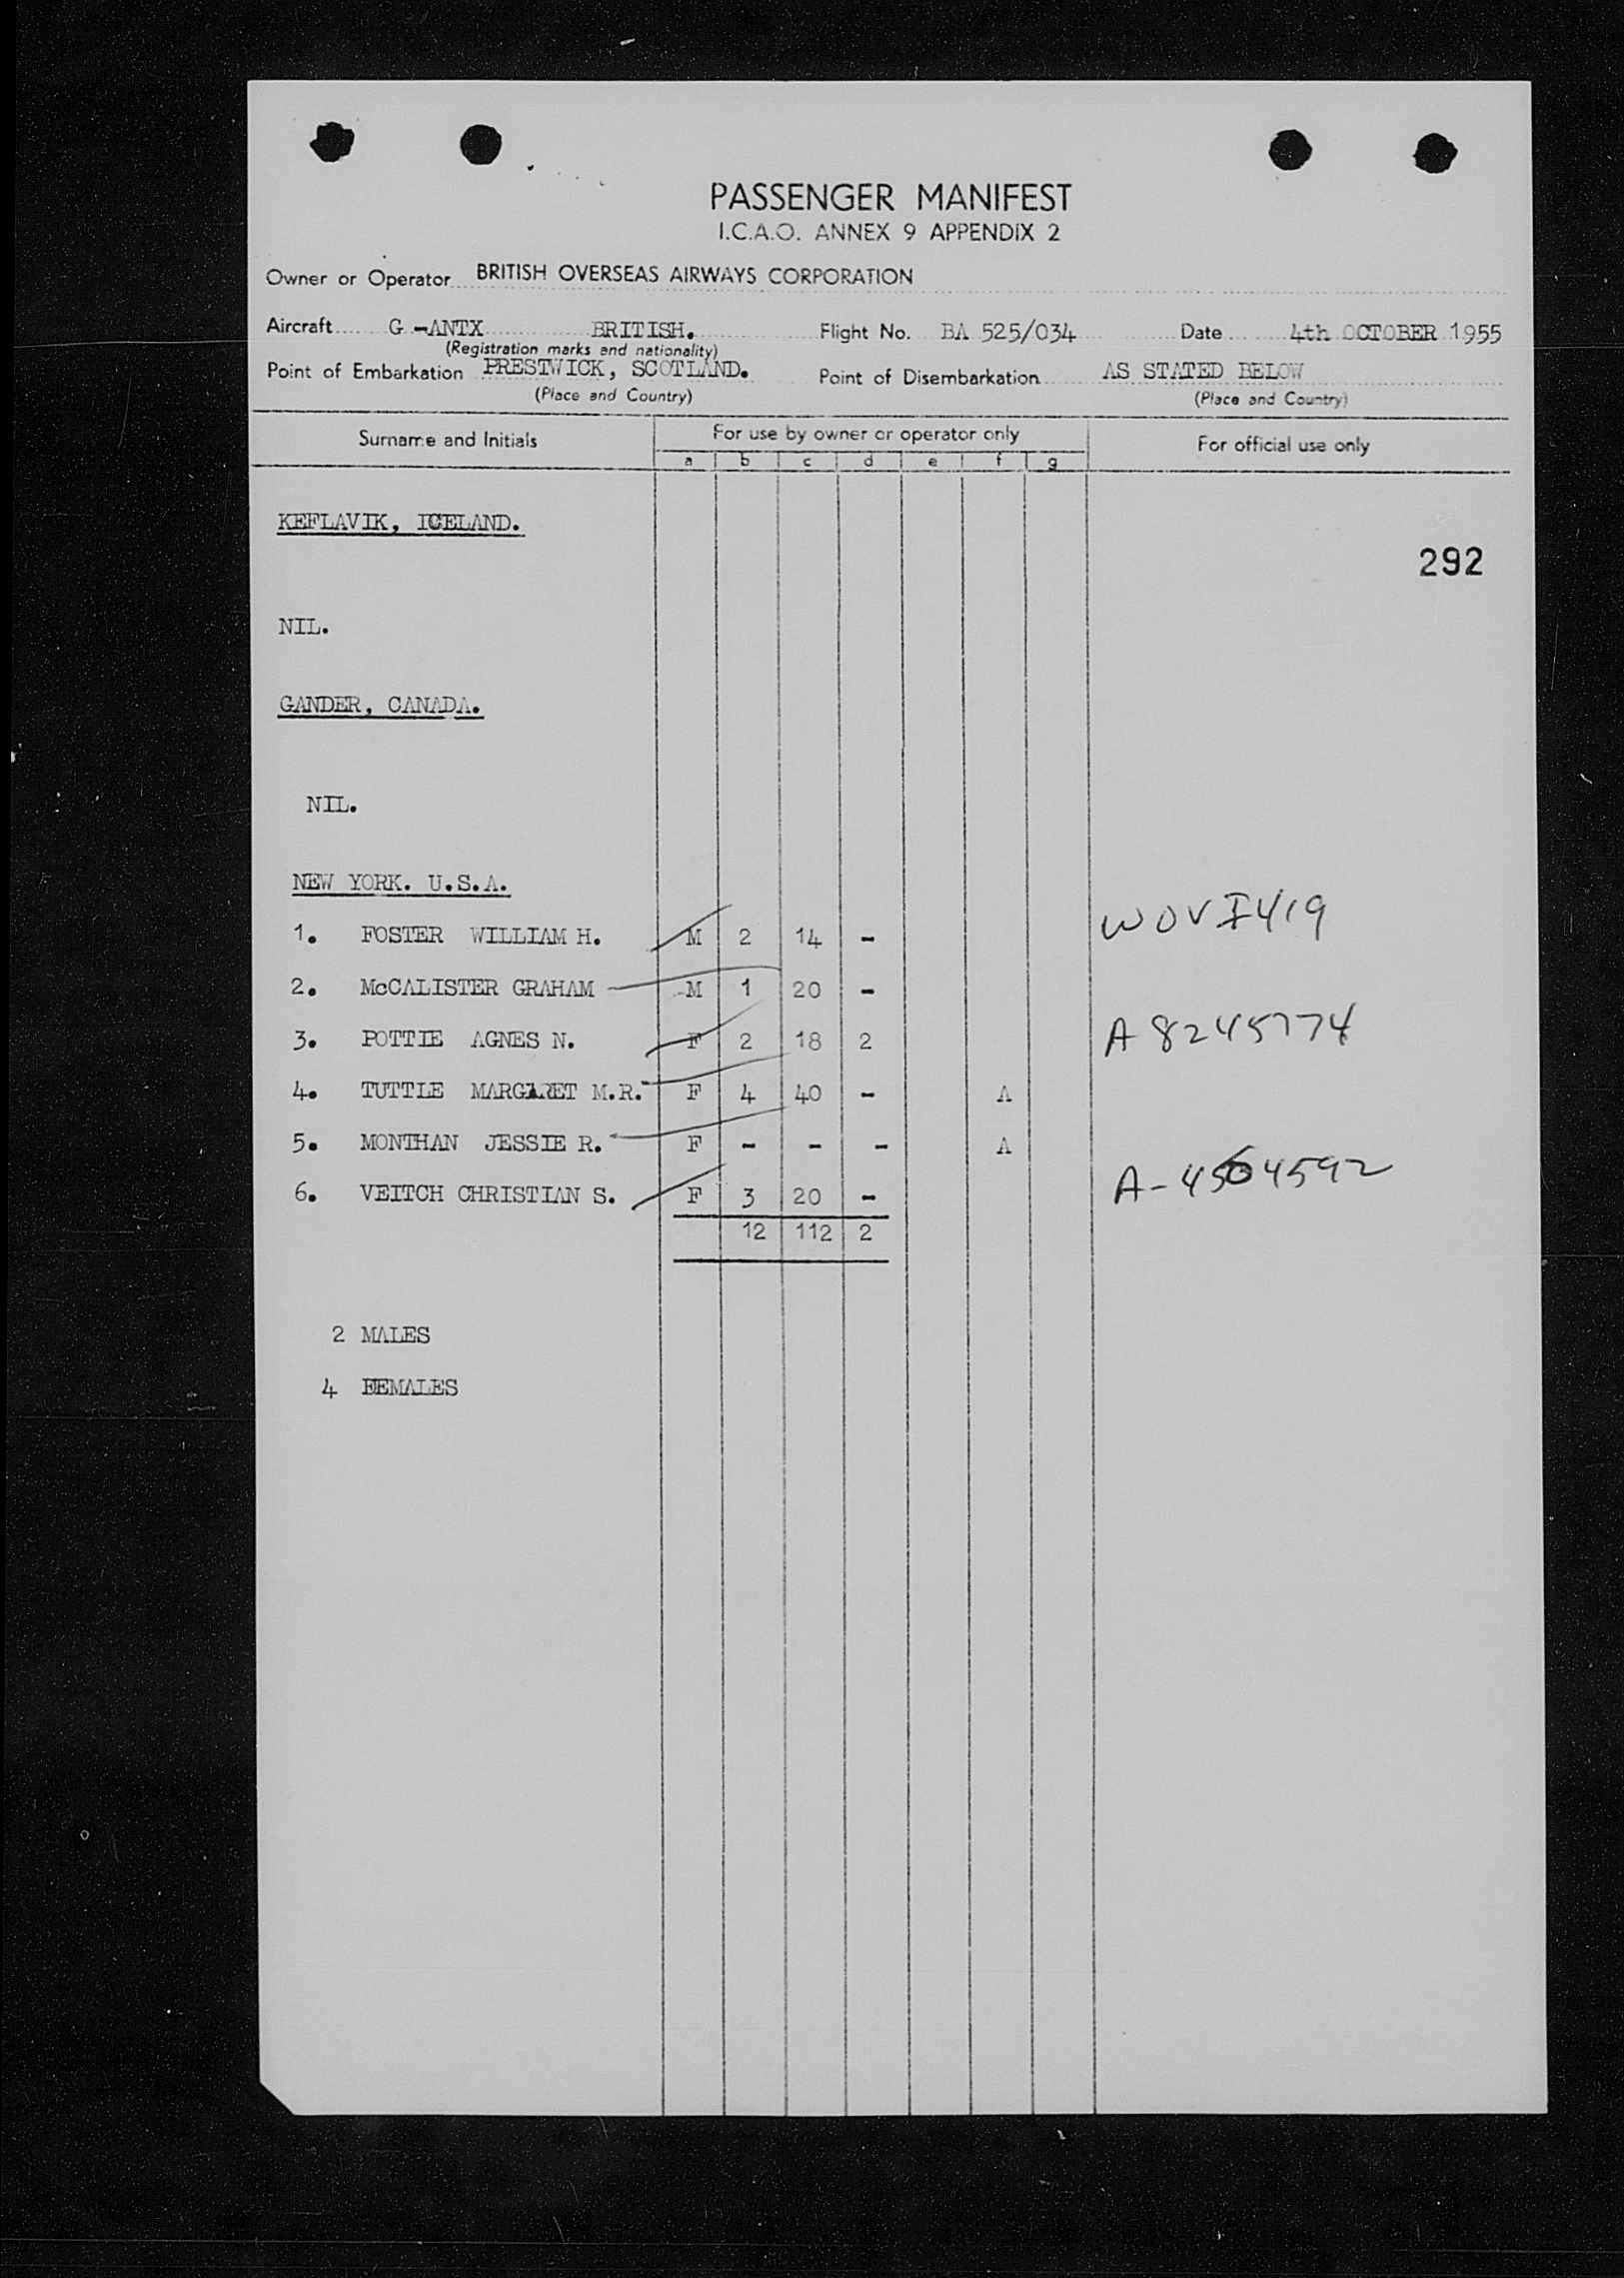 PASSENGER MANIFEST
I.C.A.O. ANNEX 9 APPENDIX 2
Owner or Operator BRITISH OVERSEAS AIRWAYS CORPORATION
Aircraft G-ANTX BRITISH. Flight No. BA 525/034 Date 4th OCTOBER 1955
(Registration marks and nationality)
Point of Embarkation PRESTWICK, SCOTLAND. Point of Disembarkation AS STATED BELOW
(Place and Country) (Place and Country)
Surname and Initials For use by owner or operator only For official use only
a b c d e f g
KEFLAVIK, ICELAND.
292
NIL.
GANDER, CANADA.
NIL.
NEW YORK. U.S.A.
1. FOSTER WILLIAM H. M 2 14 - WOV I419
2. McCALISTER GRAHAM M 1 20 -
3. POTTIE AGNES N. F 2 18 2 A 8245774
4. TUTTLE MARGARET M.R. F 4 40 - A
5. MONTHAN JESSIE R. F - - - A
6. VEITCH CHRISTIAN S. F 3 20 - A-4504592
12 112 2
2 MALES
4 FEMALES